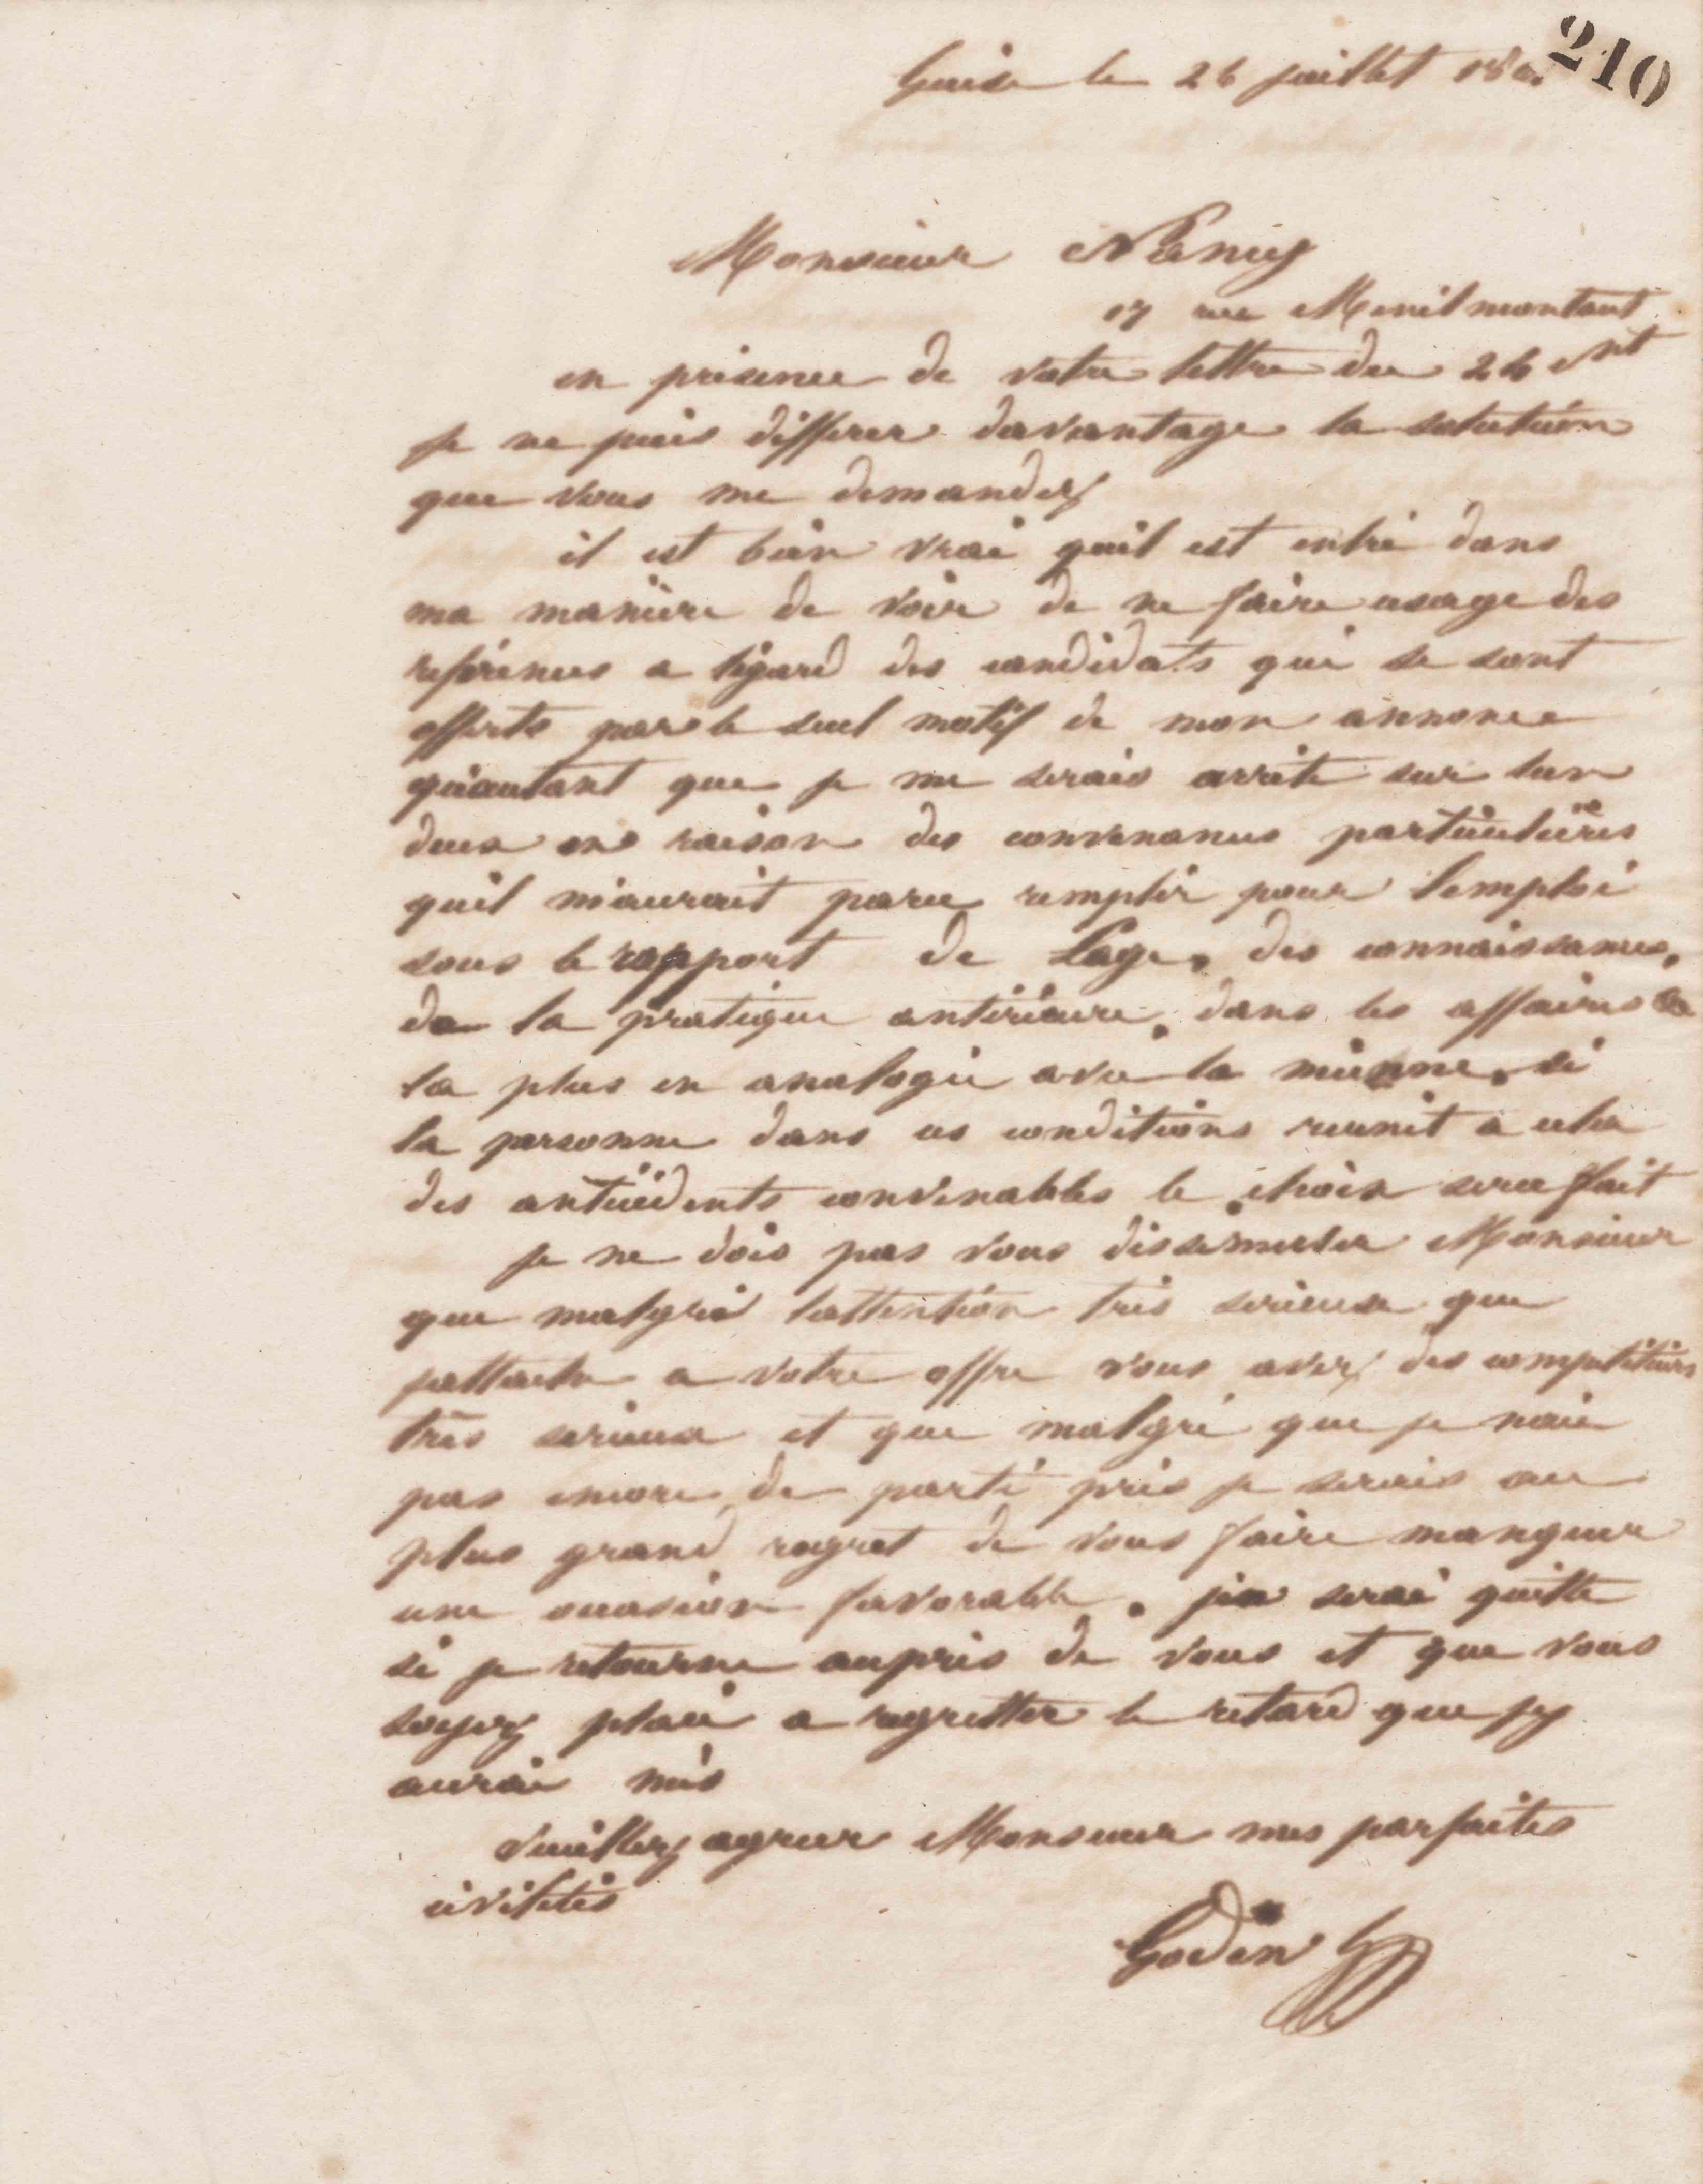 210
Guise le 26 juillet 18
Monsieur
17 rue Menilmontant
en presence de votre lettre du 24 Nt
je ne puis differer davantage la solution
que vous me demandez
il est bien vrai quil est entré dans
ma maniere de voir de ne faire usage des
references a légard des candidats qui se sont
offerts par le seul motif de mon annonce
quautant que je me serais arrité sur lun
deux en raison des convenances particulières
quil maurait paru remplir pour lemploi
sous le rapport de Lage, des connaissances,
de la pratique antérieure, dans les affaires
la plus en analogie avec la mienne. si
la personne dans ces conditions reunit a cela
des antécédents convenables le choix sera fait
je ne dois pas vous dissimuler Monsieur
que malgré lattention tres serieuse que
jattache a votre offre vous avez des competiteurs
très serieux et que malgré que je naie
pas encore de parti pris je serais au
plus grand regret de vous faire manquer
une occasion favorable. jen serai quitte
si je retourne aupres de vous et que vous
soyez placé a regretter le retard que jy
aurai mis
Veuillez agreer Monsieur mes parfaites
civilités
Godin